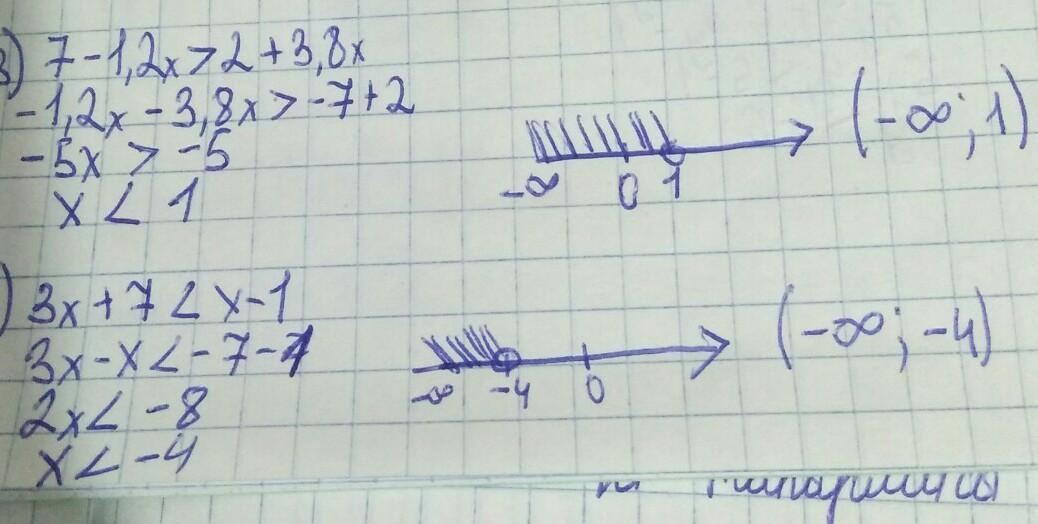 3) 7-1,2x>2+3,8x
-1,2x-3,8x>-7+2
-5x>-5
x<1
-∞ 0 1
(-∞; 1)
) 3x+7<x-1
3x-x<-7-1
2x<-8
x<-4
-∞ -4 0
(-∞; -4)